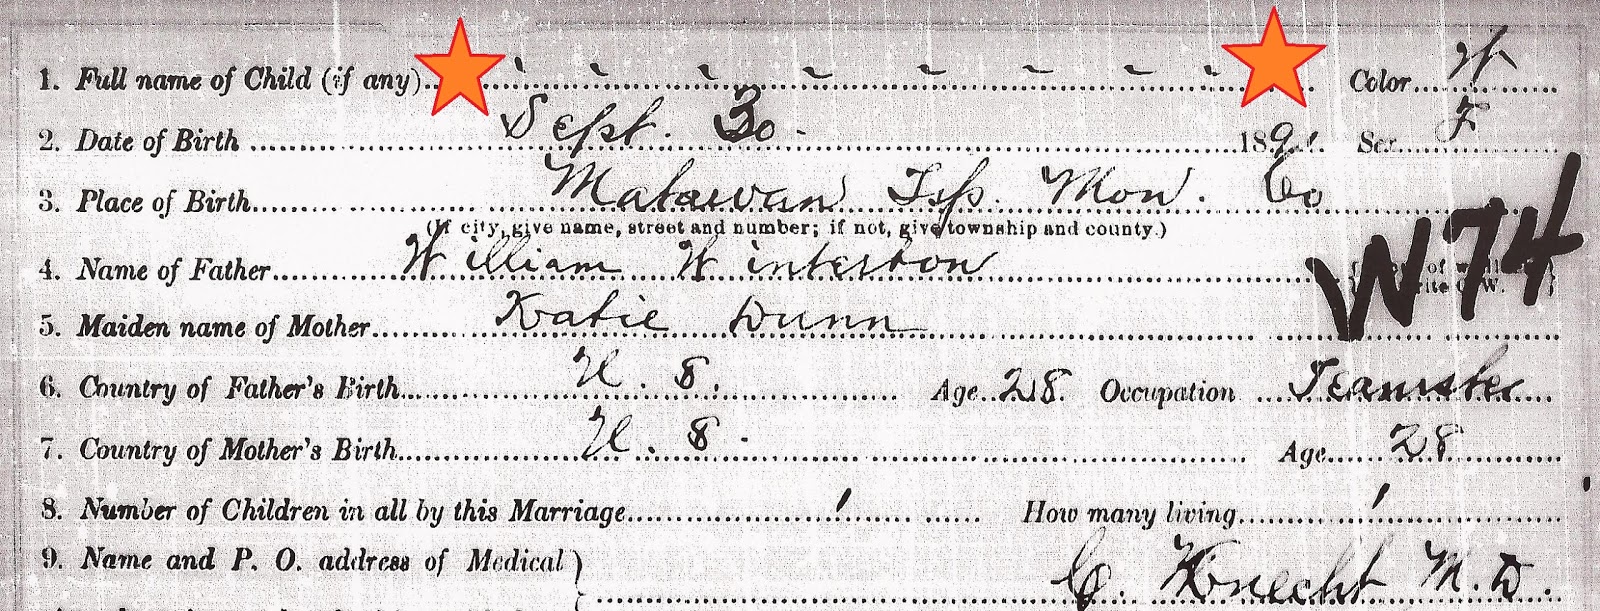 1. Full name of Child (if any) Color W
2. Date of Birth Sept. 30. 189 Sex F
3. Place of Birth Matawan Tsp. Mon. Co
(If city, give name, street and number; if not, give township and county.)
4. Name of Father William Winterton W74
5. Maiden name of Mother Katie Dunn
6. Country of Father's Birth U. S. Age 28. Occupation Teamster
7. Country of Mother's Birth U. S. Age 28
8. Number of Children in all by this Marriage 1 How many living 1
9. Name and P. O. address of Medical }
C. Knecht M.D.